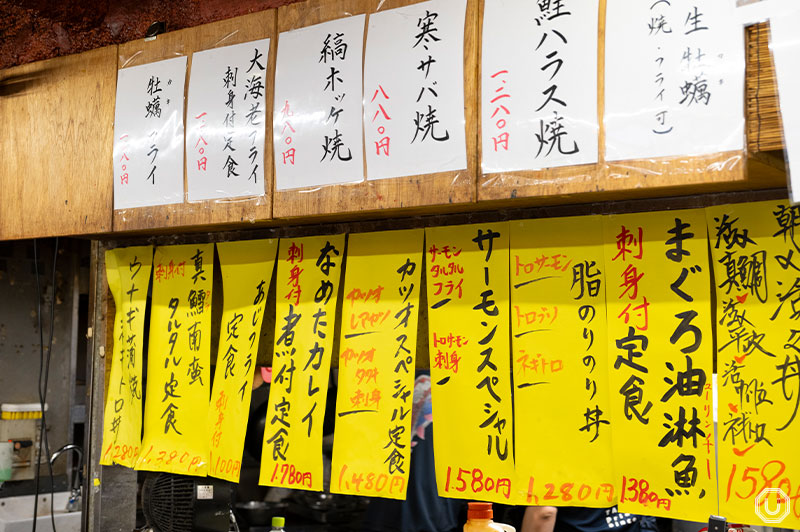 生牡蠣
(焼・フライ可)
鮭ハラス焼
1.280円
寒サバ焼
880円
縞ホッケ焼
980円
大海老フライ
刺身付定食
牡蠣フライ
朝〆活〆丼
活〆真鯛
まぐろ油淋魚
ユーリンチー
刺身付定食
1380円
脂のりのり丼
トロサーモン
トロブリ
ネギトロ
1.280円
サーモンスペシャル
サーモンタルタルフライ
トロサーモン刺身
1.580円
カツオスペシャル定食
カツオレアカツ
カツオタタキ
刺身
1.480円
なめたカレイ
煮付定食
刺身付
1.780円
あじフライ
定食
刺身付
真鱈南蛮
タルタル定食
刺身付
1.280円
ウナギ蒲焼
ネギトロ丼
1.280円